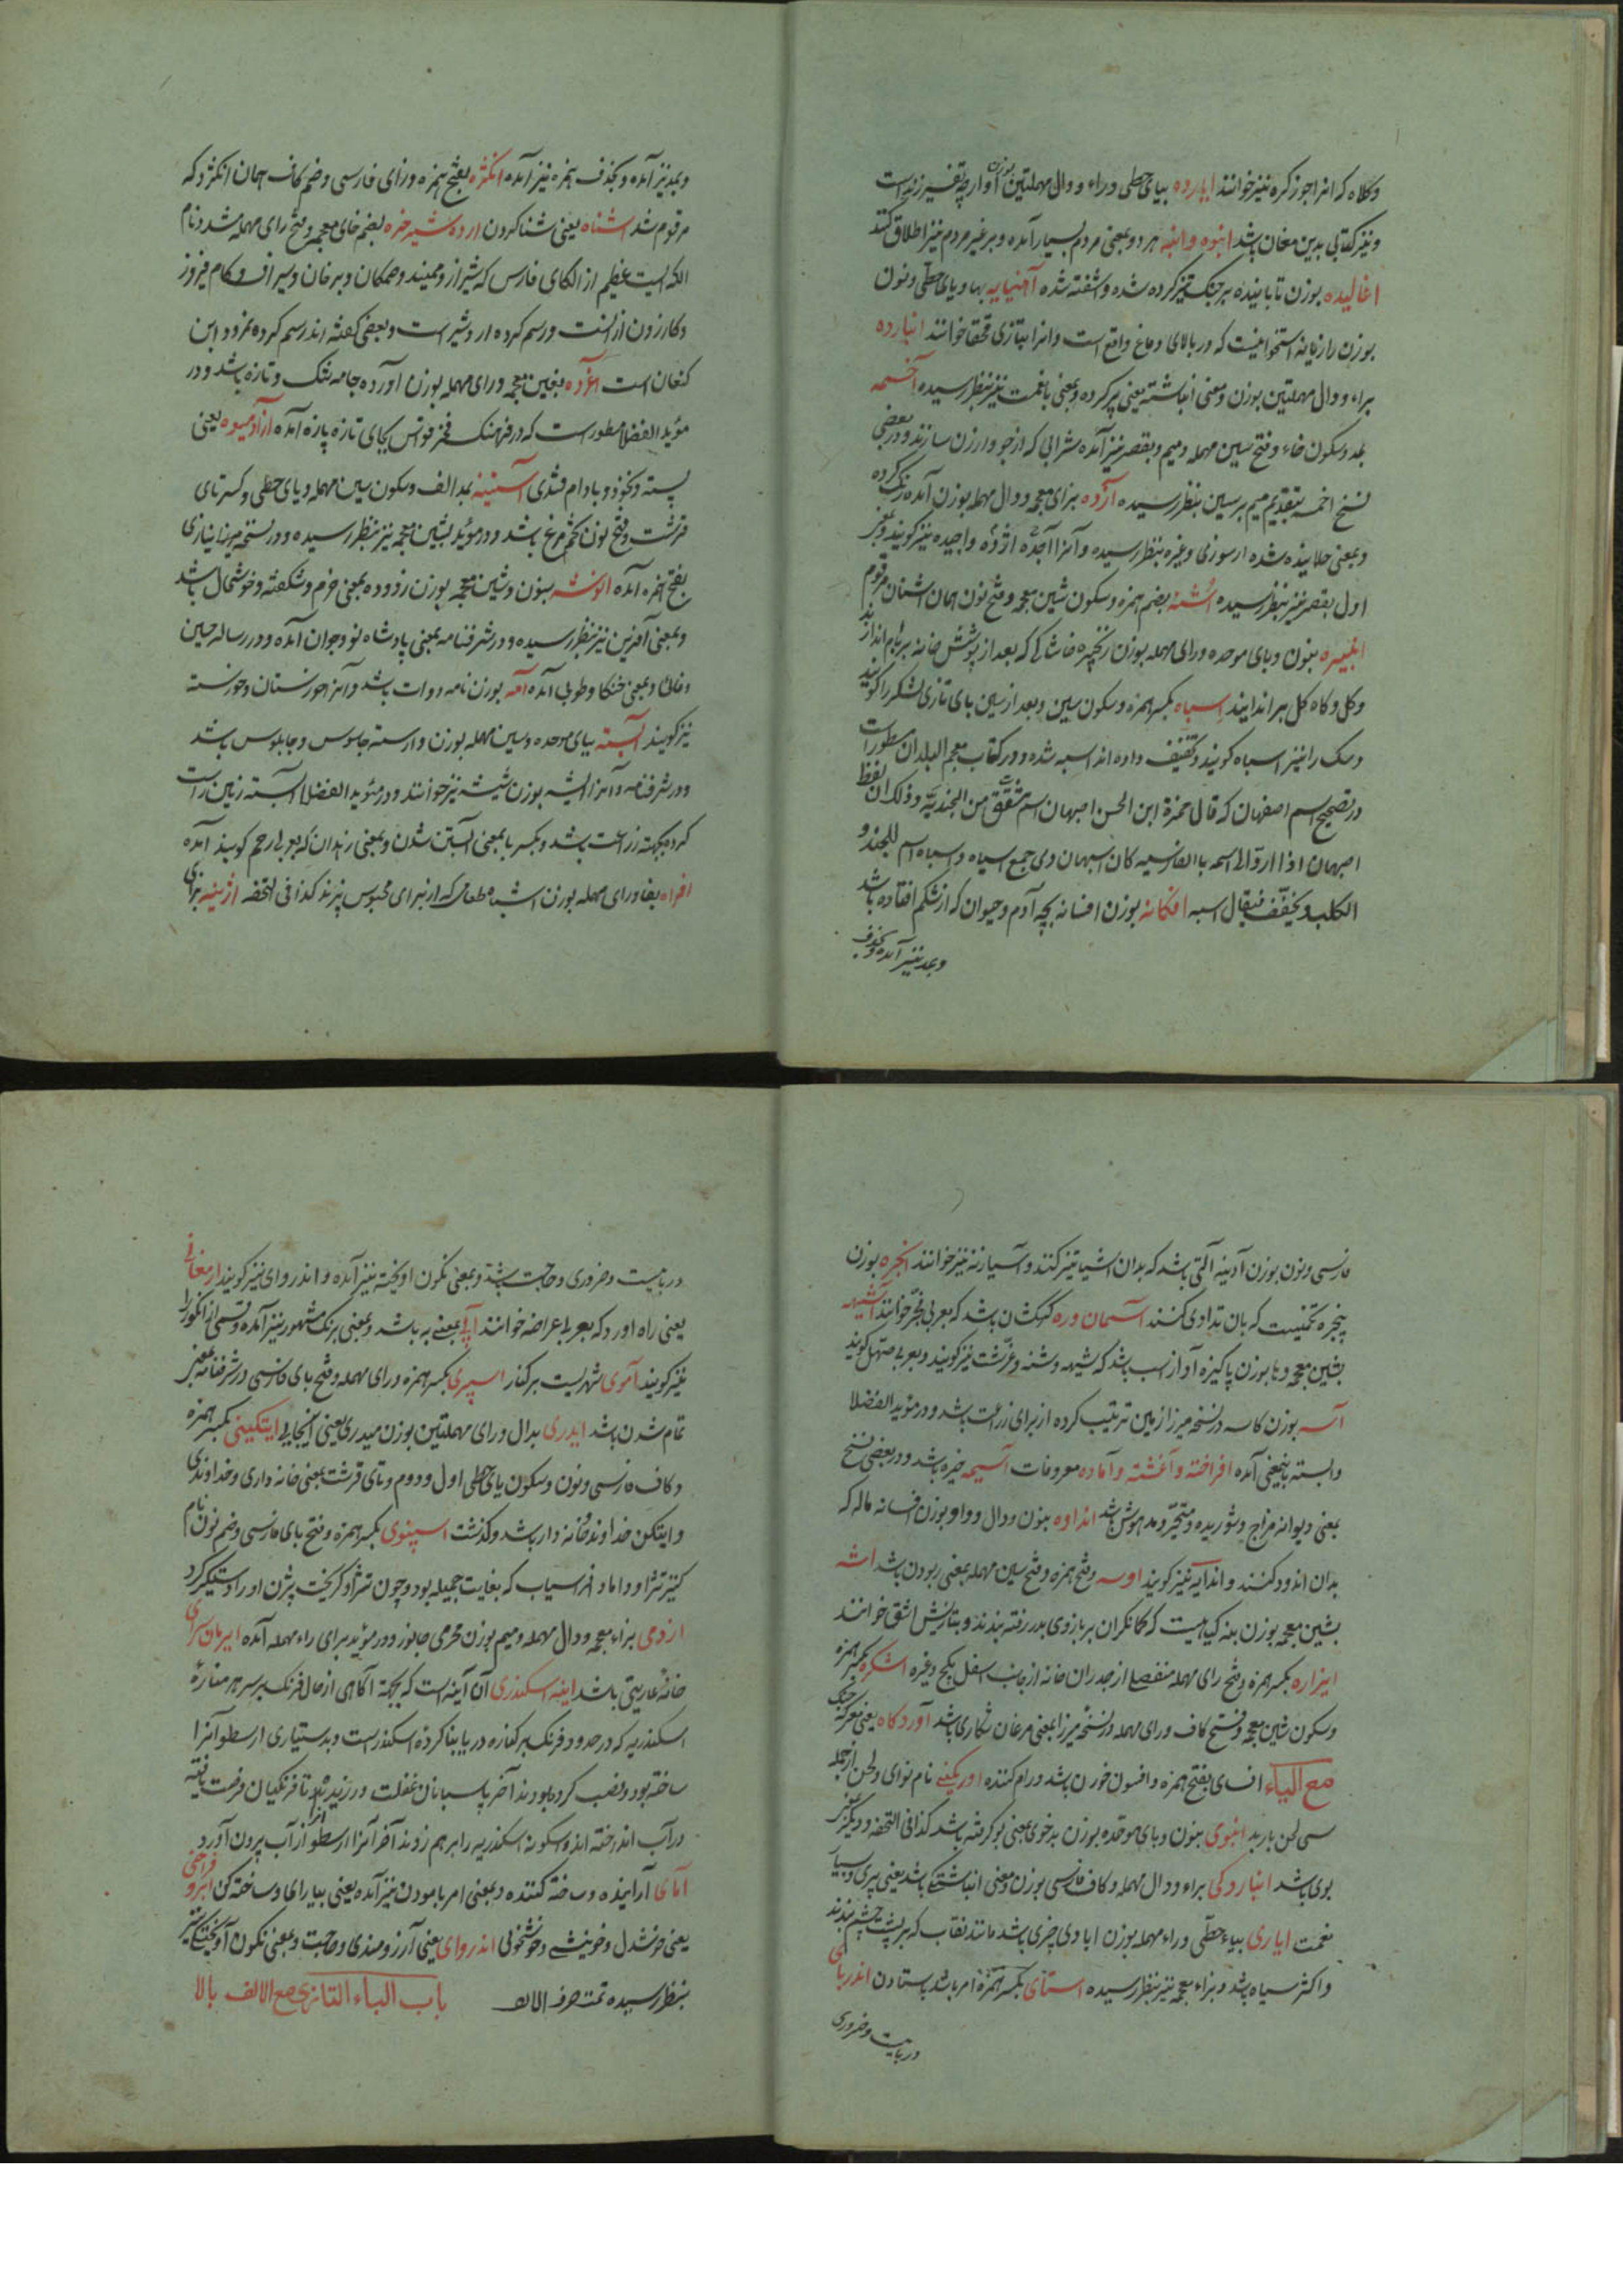 وکلاه که انرا جوز کره نیز خوانند ایارده بیای حطی وراء ودال مهملتین بوزن آوارچه تفسیر زند است
ونیز کتابی بدین مغان باشد انبوه وانبه هر دو بمعنی مردم بسیار آمده وبر غیر مردم نیز اطلاق کنند
اغالیده بوزن تابانیده بر جنک تیز کرده شده واشفته شده آهنیایه بها ویای حطی ونون
بوزن رازیانه استخوانیست که در بالای دماغ واقع است وانرا بتازی قحف خوانند انبارده
براء ودال مهملتین بوزن ومعنی انباشته یعنی پر کرده وبمعنی با نعمت نیز بنظر رسیده آخسمه
بمد وسکون خاء وفتح سین مهمله ومیم وبقصر نیز آمده شرابی که از جو وارزن سازند ودر بعضی
نسخ اخمسه بتقدیم میم بر سین بنظر رسیده آژده بزای معجمه ودال مهمله بوزن آمده رنک کرده
وبمعنی خلانیده شده از سوزنی وغیره بنظر رسیده وآنرا آجده اژده واجیده نیز کویند وبغیر
اول بقصر نیز بنظر رسیده اشنه بضم همزه وسکون شین معجمه وفتح نون همان اشنان مرقوم
انبیره بنون وبای موحده ورای مهمله بوزن زنجیره خاشاکی که بعد از پوشش خانه بر بام اندازند
وکل وکاه کل بر اندایند اسباه بکسر همزه وسکون سین وبعد از سین بای تازی لشکر را کویند
وسک را نیز اسباه کویند وتخفیف داده اند اسبه شده ودر کتاب معجم البلدان مسطور است
در تصحیح اسم اصفهان که قال حمزة ابن الحسن اصبهان اسم مشتق من الجندیة وذلک ان لفظ
اصبهان اذا رد الی اسمه بالفارسیه کان اسبهان وهی جمع اسباه واسباه اسم للجند و
الکلب ویخفف فیقال اسبه افکانه بوزن افسانه بچه آدم وحیوان که از شکم افتاده باشد
وبمد نیز آمده وبحذف
وبمد نیز آمده وبحذف همزه نیز آمده انکژه بفتح همزه وزای فارسی وضم کاف همان انکژد که
مرقوم شد اشناه یعنی شنا کردن ارده شیر خره بضم خای معجمه وفتح رای مهمله مشدد نام
الکه ایست عظیم از الکای فارس که شیراز ومیبند وصمکان وبرخان وسیراف وکام فیروز
وکازرون از انست ورسم کرده اردشیر است وبعضی کفته اند رسم کرده نمرود ابن
کنعان است آغرده بغین معجمه ورای مهمله بوزن آورده جامه تنک وتازه باشد ودر
مؤید الفضلا مسطور است که در فرهنک فخر قواس بجای تازه پازه آمده ازاد میوه یعنی
پسته ونخود وبادام قندی آستینه بمد الف وسکون سین مهمله ویای حطی وکسر تای
قرشت وفتح نون تخم مرغ باشد ودر مؤید بشین معجمه نیز بنظر رسیده ودر نسخه میرزا نیازی
بفتح همزه آمده انوشه بنون وشین معجمه بوزن زدوده بمعنی خرم وشکفته وخوشحال باشد
وبمعنی آفرین نیز بنظر رسیده ودر شرفنامه بمعنی پادشاه نو وجوان آمده ودر رساله حسین
وفائی وبمعنی خنکا وطوبی آمده آمه بوزن نامه دوات باشد وآنرا خورستان وخورسته
نیز کویند آبسته ببای موحده وسین مهمله بوزن وارسته جاسوس وچابلوس باشد
ودر شرفنامه وآنرا ایشه بوزن شیشه نیز خوانند ودر مؤید الفضلا آبسته زمین راست
کرده بجهته زراعت باشد وبکسر با بمعنی آبستن شدن وبمعنی زهدان که بعربی رحم کویند آمده
افراه بفا ورای مهمله بوزن اشباه طعامی که از برای محبوس پزند کذا فی التحفه اژینه بزای
فارسی ونون بوزن آدینه آلتی باشد که بدان اسیا تیز کنند وآسیازنه نیز خوانند انجره بوزن
پنجره تخمیست که بان تداوی کنند آسمان دره کهکشان باشد که بعربی مجره خوانند آشیهه
بشین معجمه وها بوزن پاکیزه آواز اسب باشد که شیهه وشنه وغرشت نیز کویند وبعربی صهیل کویند
آسه بوزن کاسه در نسخه میرزا زمین ترتیب کرده از برای زراعت باشد ودر مؤید الفضلا
وابسته باینمعنی آمده افراخته وآغشته وآماده معروفات آسیمه خیره باشد ودر بعضی نسخ
بمعنی دیوانه مزاج وشوریده ومتحیر ومدهوش باشد انداوه بنون ودال وواو بوزن افسانه ماله که
بدان اندود کنند واندایه نیز کویند اوسه وفتح همزه وفتح سین مهمله بمعنی ربودن باشد اشه
بشین معجمه بوزن بنه کیاهیست که کمانکران بر بازوی بدر رفته بندند وبتازیش اشق خوانند
ایزاره بکسر همزه وفتح رای مهمله منفصل از جدران خانه از جانب اسفل بکج وغیره اشکره بکسر همزه
وسکون شین معجمه وفتح کاف ورای مهمله در نسخه میرزا بمعنی مرغان شکاری باشد آوردکاه یعنی معرکه جنک
مع الیاء افسای بفتح همزه وافسون خوان باشد ورام کننده اورنکی نام نوای ولحن از جمله
سی لحن باربد انبوی بنون وبای موحده بوزن بدخوی بمعنی بو کرفته باشد کذا فی التحفه ودیکر
بوی باشد انباردکی براء ودال مهمله وکاف فارسی بوزن ومعنی انباشتکی باشد یعنی پری وبسیار
نعمت ایاری بیاء حطی وراء مهمله بوزن ابادی چیزی باشد مانند نقاب که بر پشت چشم بندند
واکثر سیاه باشد وبزاء معجمه نیز بنظر رسیده استای بکسر همزه امر باشد باستادن اندربای
دربایست وضروری
دربایست وضروری وحاجت باشد وبمعنی نکون اویخته نیز آمده واندروای نیز کویند ارمغانی
یعنی راه اورد که بعربی عراضه خوانند آبی بمعنی به باشد وبمعنی برنک مشهور نیز آمده وقسمی از انکور را
نیز کویند آموی شهریست بر کنار اسپری بکسر همزه ورای مهمله وفتح بای فارسی در شرفنامه بمعنی
تمام شدن باشد ایدری بدال ورای مهملتین بوزن حیدری یعنی اینجایی ایتکینی بکسر همزه
وکاف فارسی ونون وسکون یای حطی اول ودوم وتای قرشت بمعنی خانه داری وخداوندی
وایتکن خداوند خانه دار باشد وکذشت اسپنوی بکسر همزه وفتح بای فارسی وضم نون نام
کنیز تژاو داماد افراسیاب که بغایت جمیله بود وچون تژاو کریخت بیژن اورا دستکیر کرد
ازدمی بزاء معجمه ودال مهمله ومیم بوزن محرمی جانور ودر مؤید برای راء مهمله آمده ایرمان سرای
خانه عاریتی باشد اینه اسکندری آن آینه است که بجهة آکاهی از حال فرنک بر سر هر مناره
اسکندریه که در حدود فرنک بر کناره دریا بنا کرده اسکندر است وبدستیاری ارسطو آنرا
ساخته بود ونصب کرده بودند آخر پاسبانان غفلت ورزیدند تا فرنکیان فرصت یافته
در آب انداخته اند وسکونه اسکندریه را برهم زدند آخر آنرا ارسطو از آب بیرون آورد
آمای آراینده وساخته کننده وبمعنی امر بآمودن نیز آمده یعنی بیارای وساخته کن ابرو فراخی
یعنی خوشدل وخویشی وخوشخوئی اندروای یعنی آرزومندی وحاجت وبمعنی نکون آویخته نیز
بنظر رسیده تمت حرف الالف باب الباء التازی مع الالف بالا